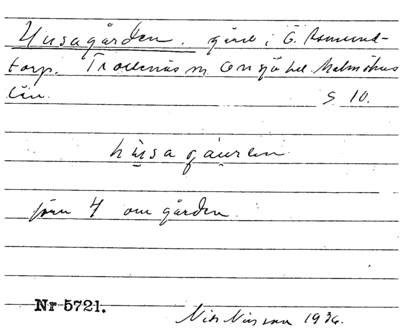 Husagården. gård i Ö. Asmund-
torp. Trollenäs sn Onsjö hd Malmöhus
län. S 10.
hùsagáuren
från 4 om gården.
Nr 5721.
Nils Nilsson 1936.